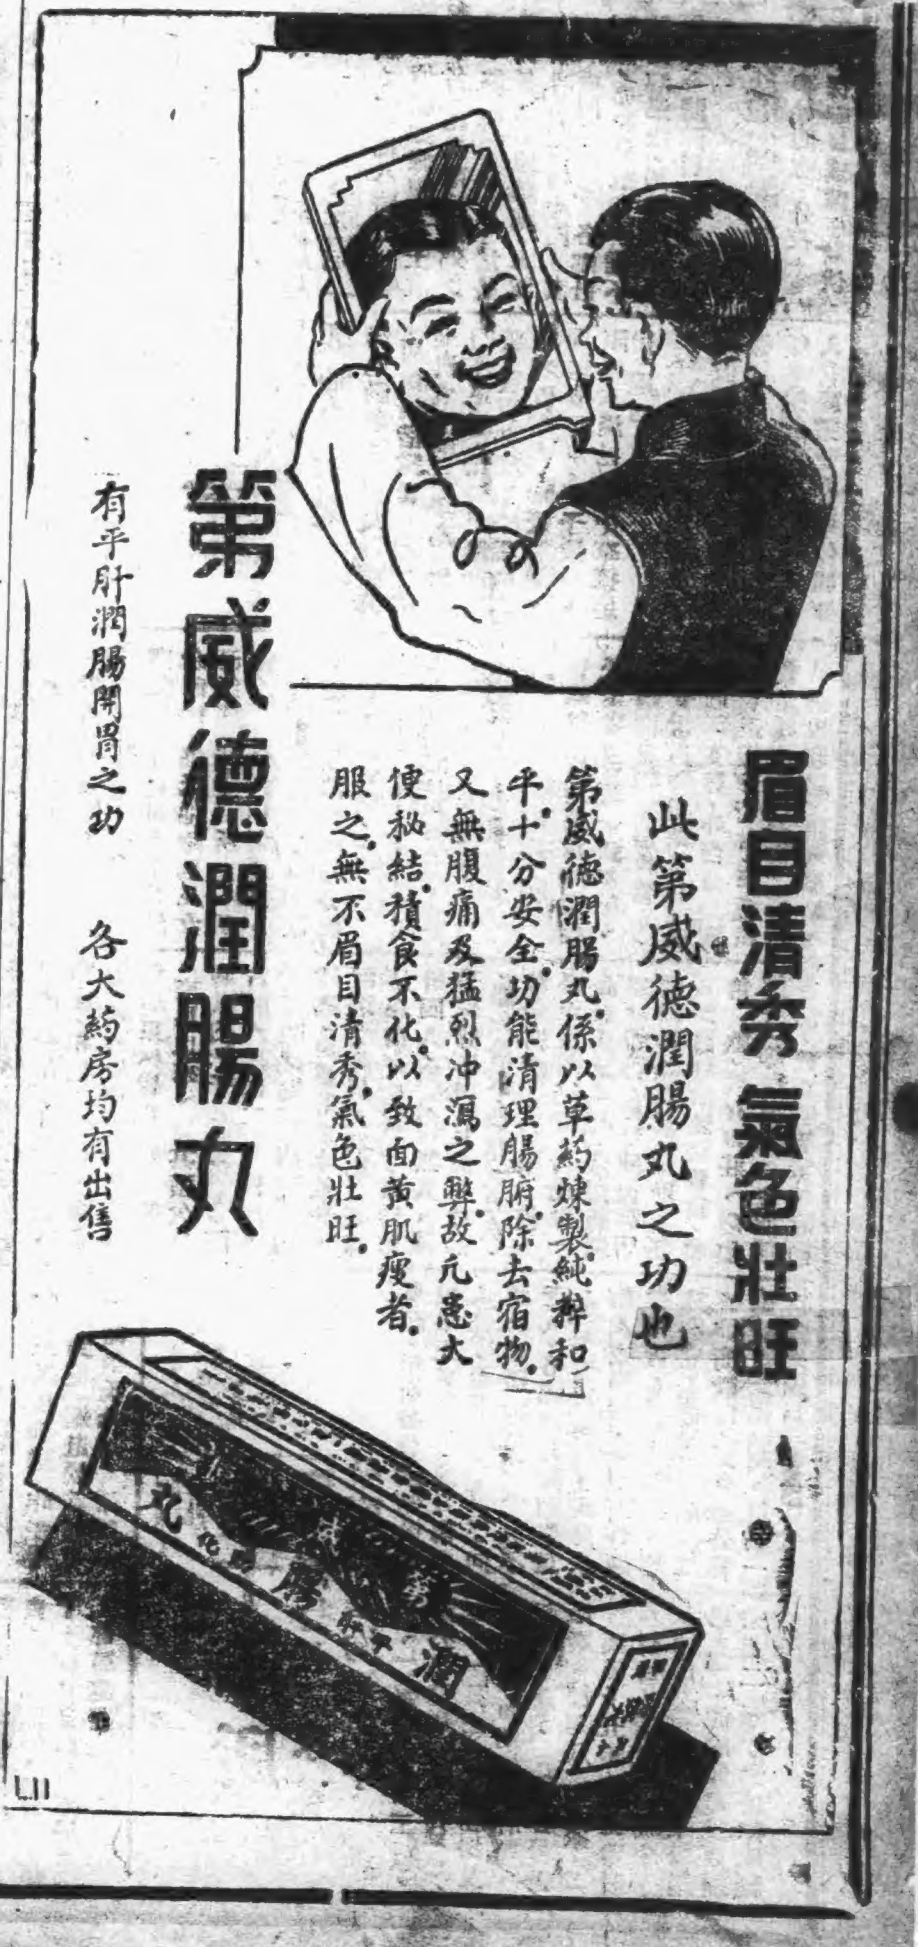 眉目清秀 氣色壯旺
此第威德潤腸丸之功也
第威德潤腸丸。係以草葯煉製。純粹和
平。十分安全。功能清理腸腑。除去宿物。
又無腹痛及猛烈冲瀉之弊。故凢患大
便秘結。積食不化。以致面黃肌瘦者。
服之。無不眉目清秀。氣色壯旺。
第威德潤腸丸
有平肝潤腸開胃之功 各大葯房均有出售
潤
平肝
腸
化
丸
L11